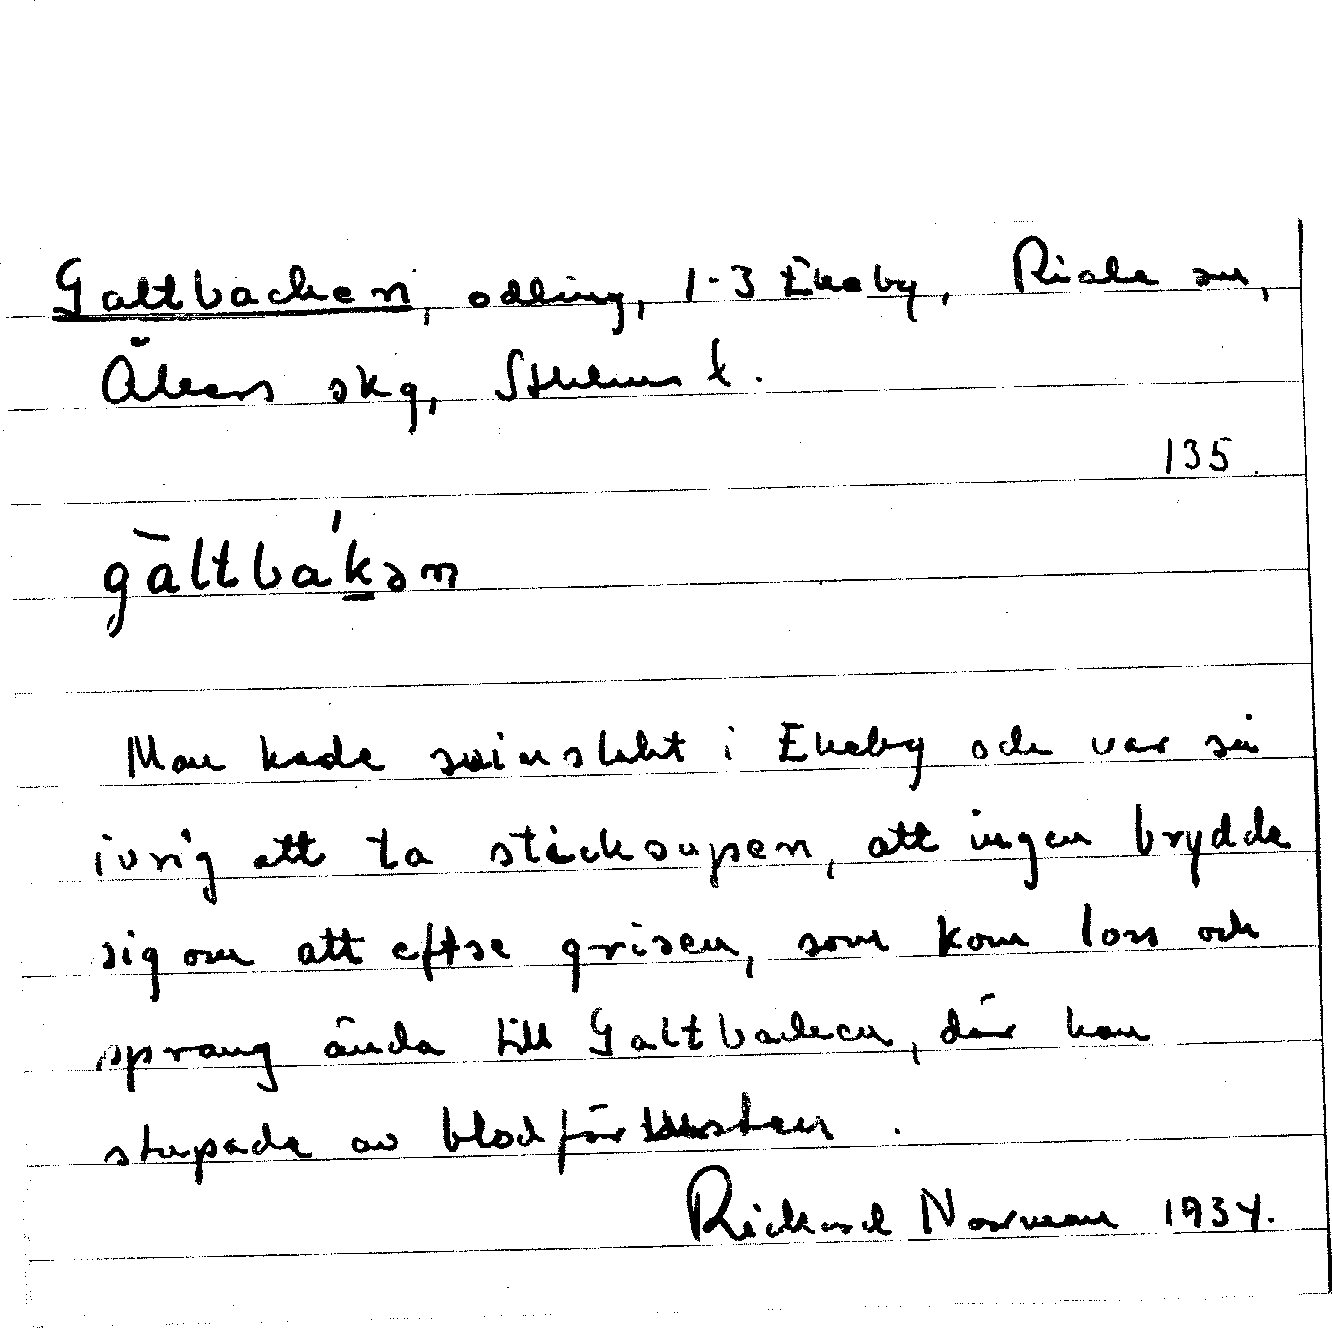 Galtbacken, odling, 1-3 Ekeby, Riala sn,
Åkers skg, Sthlms l.
135.
gàltbák̲ən
Man hade svinslakt i Ekeby och var så
ivrig att ta sticksupen, att ingen brydde
sig om att eftse grisen, som kom loss och
sprang ända till Galtbacken, där han
stupade av blodförlusten.
Rickard Norman 1934.